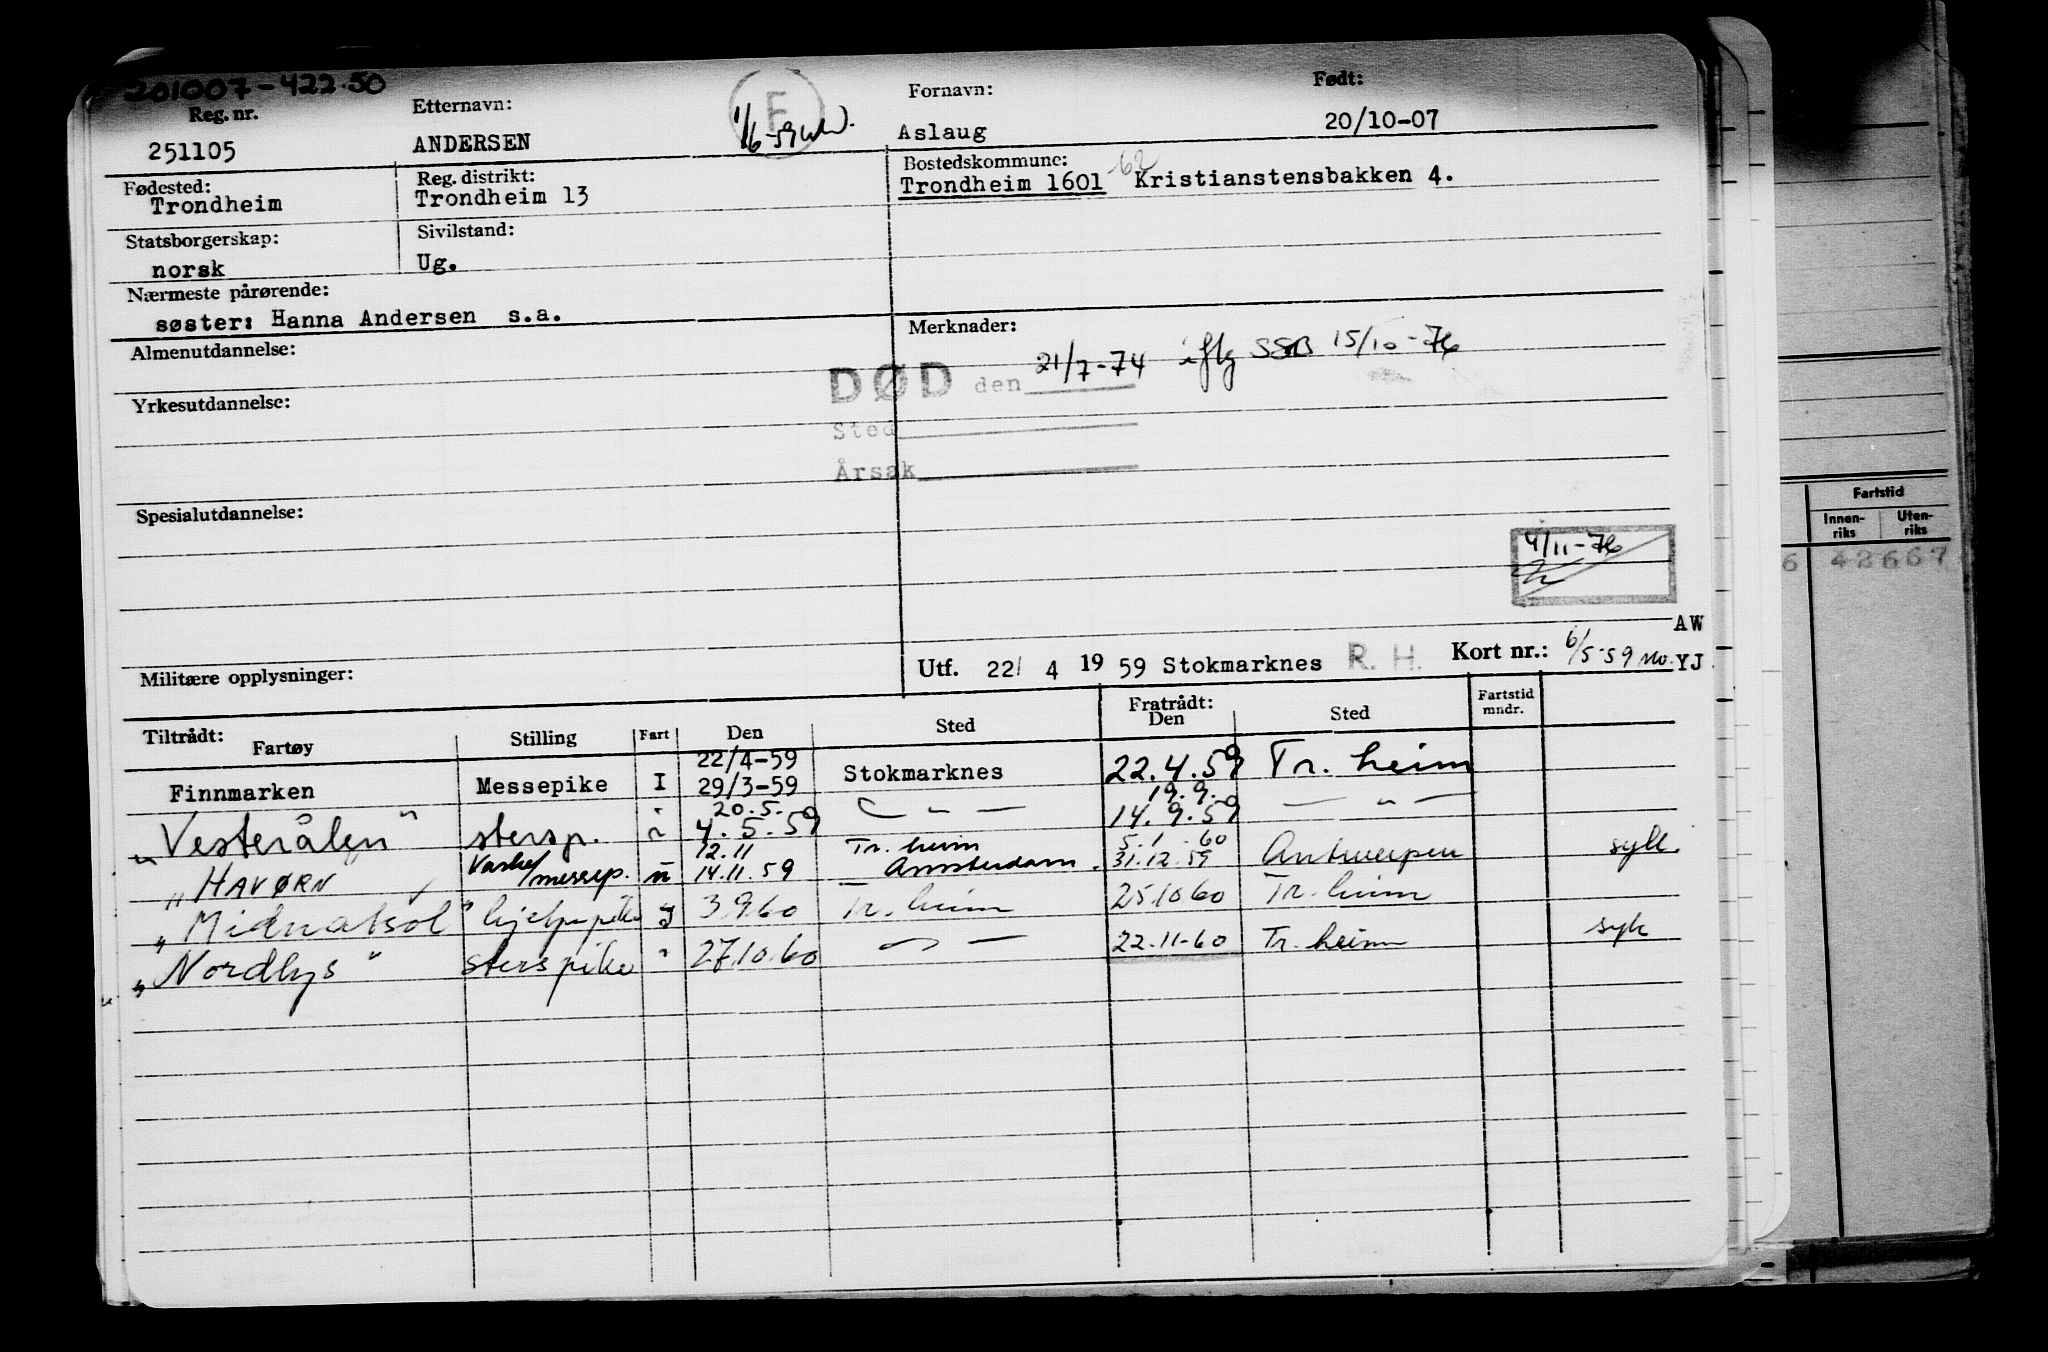 201007-422.50
Reg. nr. Etternavn: F Fornavn: Født:
251105 ANDERSEN 1/6-59 Aslaug 20/10-07
Fødested: Reg. distrikt: Bostedskommune: -62
Trondheim Trondheim 13 Trondheim 1601 Kristianstensbakken 4.
Statsborgerskap: Sivilstand:
norsk Ug.
Nærmeste pårørende:
søster: Hanna Andersen s.a.
Merknader:
Almenutdannelse:
DØD den 21/7-74 iflg SSB 15/10-76
Yrkesutdannelse:
Sted
Årsak
Spesialutdannelse:
4/11-76
AW
Militære opplysninger:
Utf. 22/ 4 1959 Stokmarknes R. H. Kort nr.: 6/5-59 YJ
Tiltrådt: Fratrådt: Fartstid mndr.
Fartøy Stilling Fart Den Sted Den Sted
22/4-59
Finnmarken Messepike I 29/3-59 Stokmarknes 22.4.59 Tr. heim
20.5. 19.9.
"Vesterålen" stersp. " 4.5.59 — " — 14.9.59 — " —
12.11 Tr. heim 5.1.60
"HAVØRN Vaske/messep. u 14.11.59 Amsterdam. 31.12.59 Antwerpen syk.
"Midnatsol" hjelpepike I 3.9.60 Tr. heim 25.10.60 Tr. heim
"Nordlys" sterspike " 27.10.60 — " — 22.11-60 Tr. heim syk
Fartstid
Innen-riks Uten-riks
6 42667